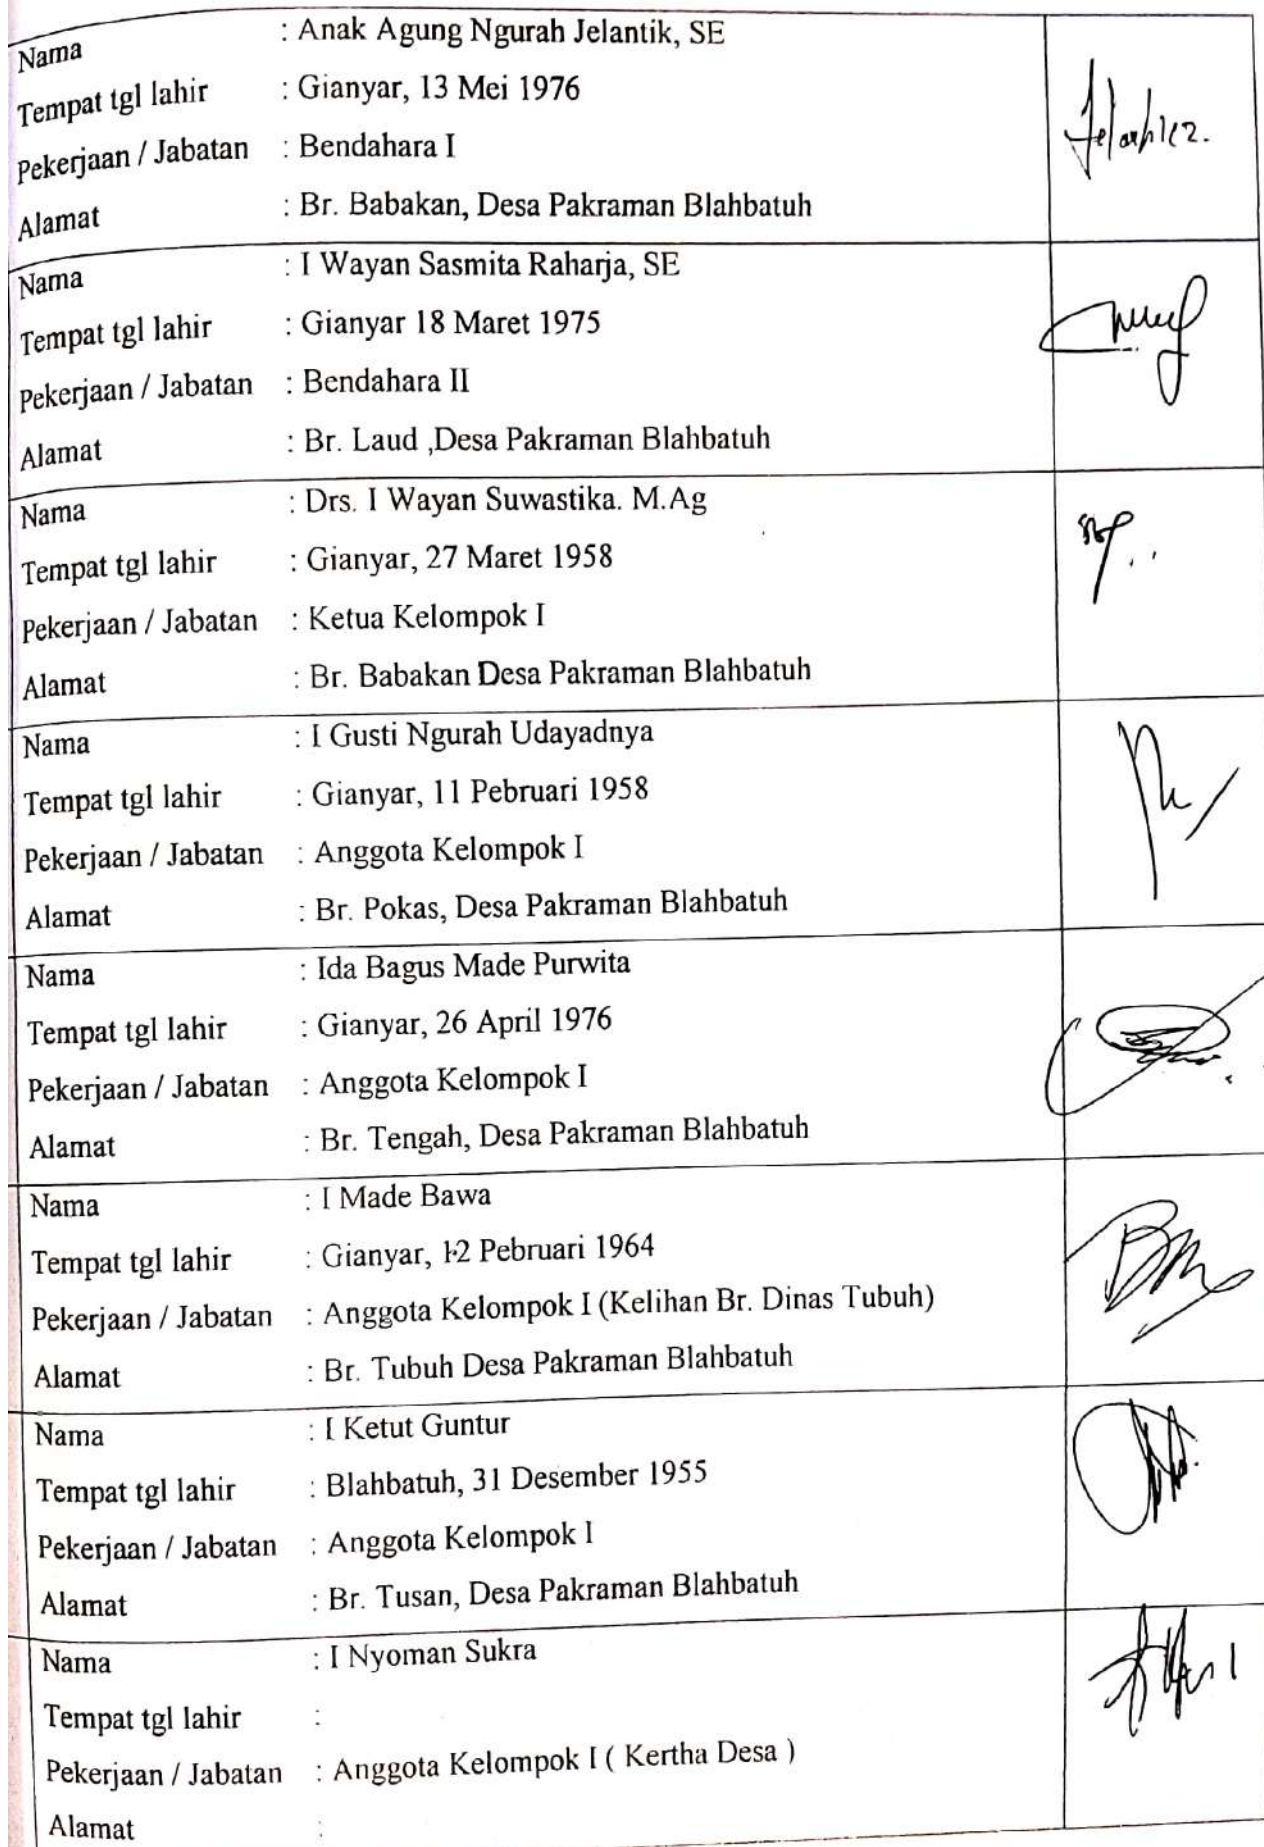 Nama : Anak Agung Ngurah Jelantik, SE
Tempat tgl lahir : Gianyar, 13 Mei 1976
Pekerjaan / Jabatan : Bendahara I
Alamat : Br. Babakan, Desa Pakraman Blahbatuh
Nama : I Wayan Sasmita Raharja, SE
Tempat tgl lahir : Gianyar 18 Maret 1975
Pekerjaan / Jabatan : Bendahara II
Alamat : Br. Laud ,Desa Pakraman Blahbatuh
Nama : Drs. I Wayan Suwastika. M.Ag
Tempat tgl lahir : Gianyar, 27 Maret 1958
Pekerjaan / Jabatan : Ketua Kelompok I
Alamat : Br. Babakan Desa Pakraman Blahbatuh
Nama : I Gusti Ngurah Udayadnya
Tempat tgl lahir : Gianyar, 11 Pebruari 1958
Pekerjaan / Jabatan : Anggota Kelompok I
Alamat : Br. Pokas, Desa Pakraman Blahbatuh
Nama : Ida Bagus Made Purwita
Tempat tgl lahir : Gianyar, 26 April 1976
Pekerjaan / Jabatan : Anggota Kelompok I
Alamat : Br. Tengah, Desa Pakraman Blahbatuh
Nama : I Made Bawa
Tempat tgl lahir : Gianyar, 12 Pebruari 1964
Pekerjaan / Jabatan : Anggota Kelompok I (Kelihan Br. Dinas Tubuh)
Alamat : Br. Tubuh Desa Pakraman Blahbatuh
Nama : I Ketut Guntur
Tempat tgl lahir : Blahbatuh, 31 Desember 1955
Pekerjaan / Jabatan : Anggota Kelompok I
Alamat : Br. Tusan, Desa Pakraman Blahbatuh
Nama : I Nyoman Sukra
Tempat tgl lahir :
Pekerjaan / Jabatan : Anggota Kelompok I ( Kertha Desa )
Alamat :